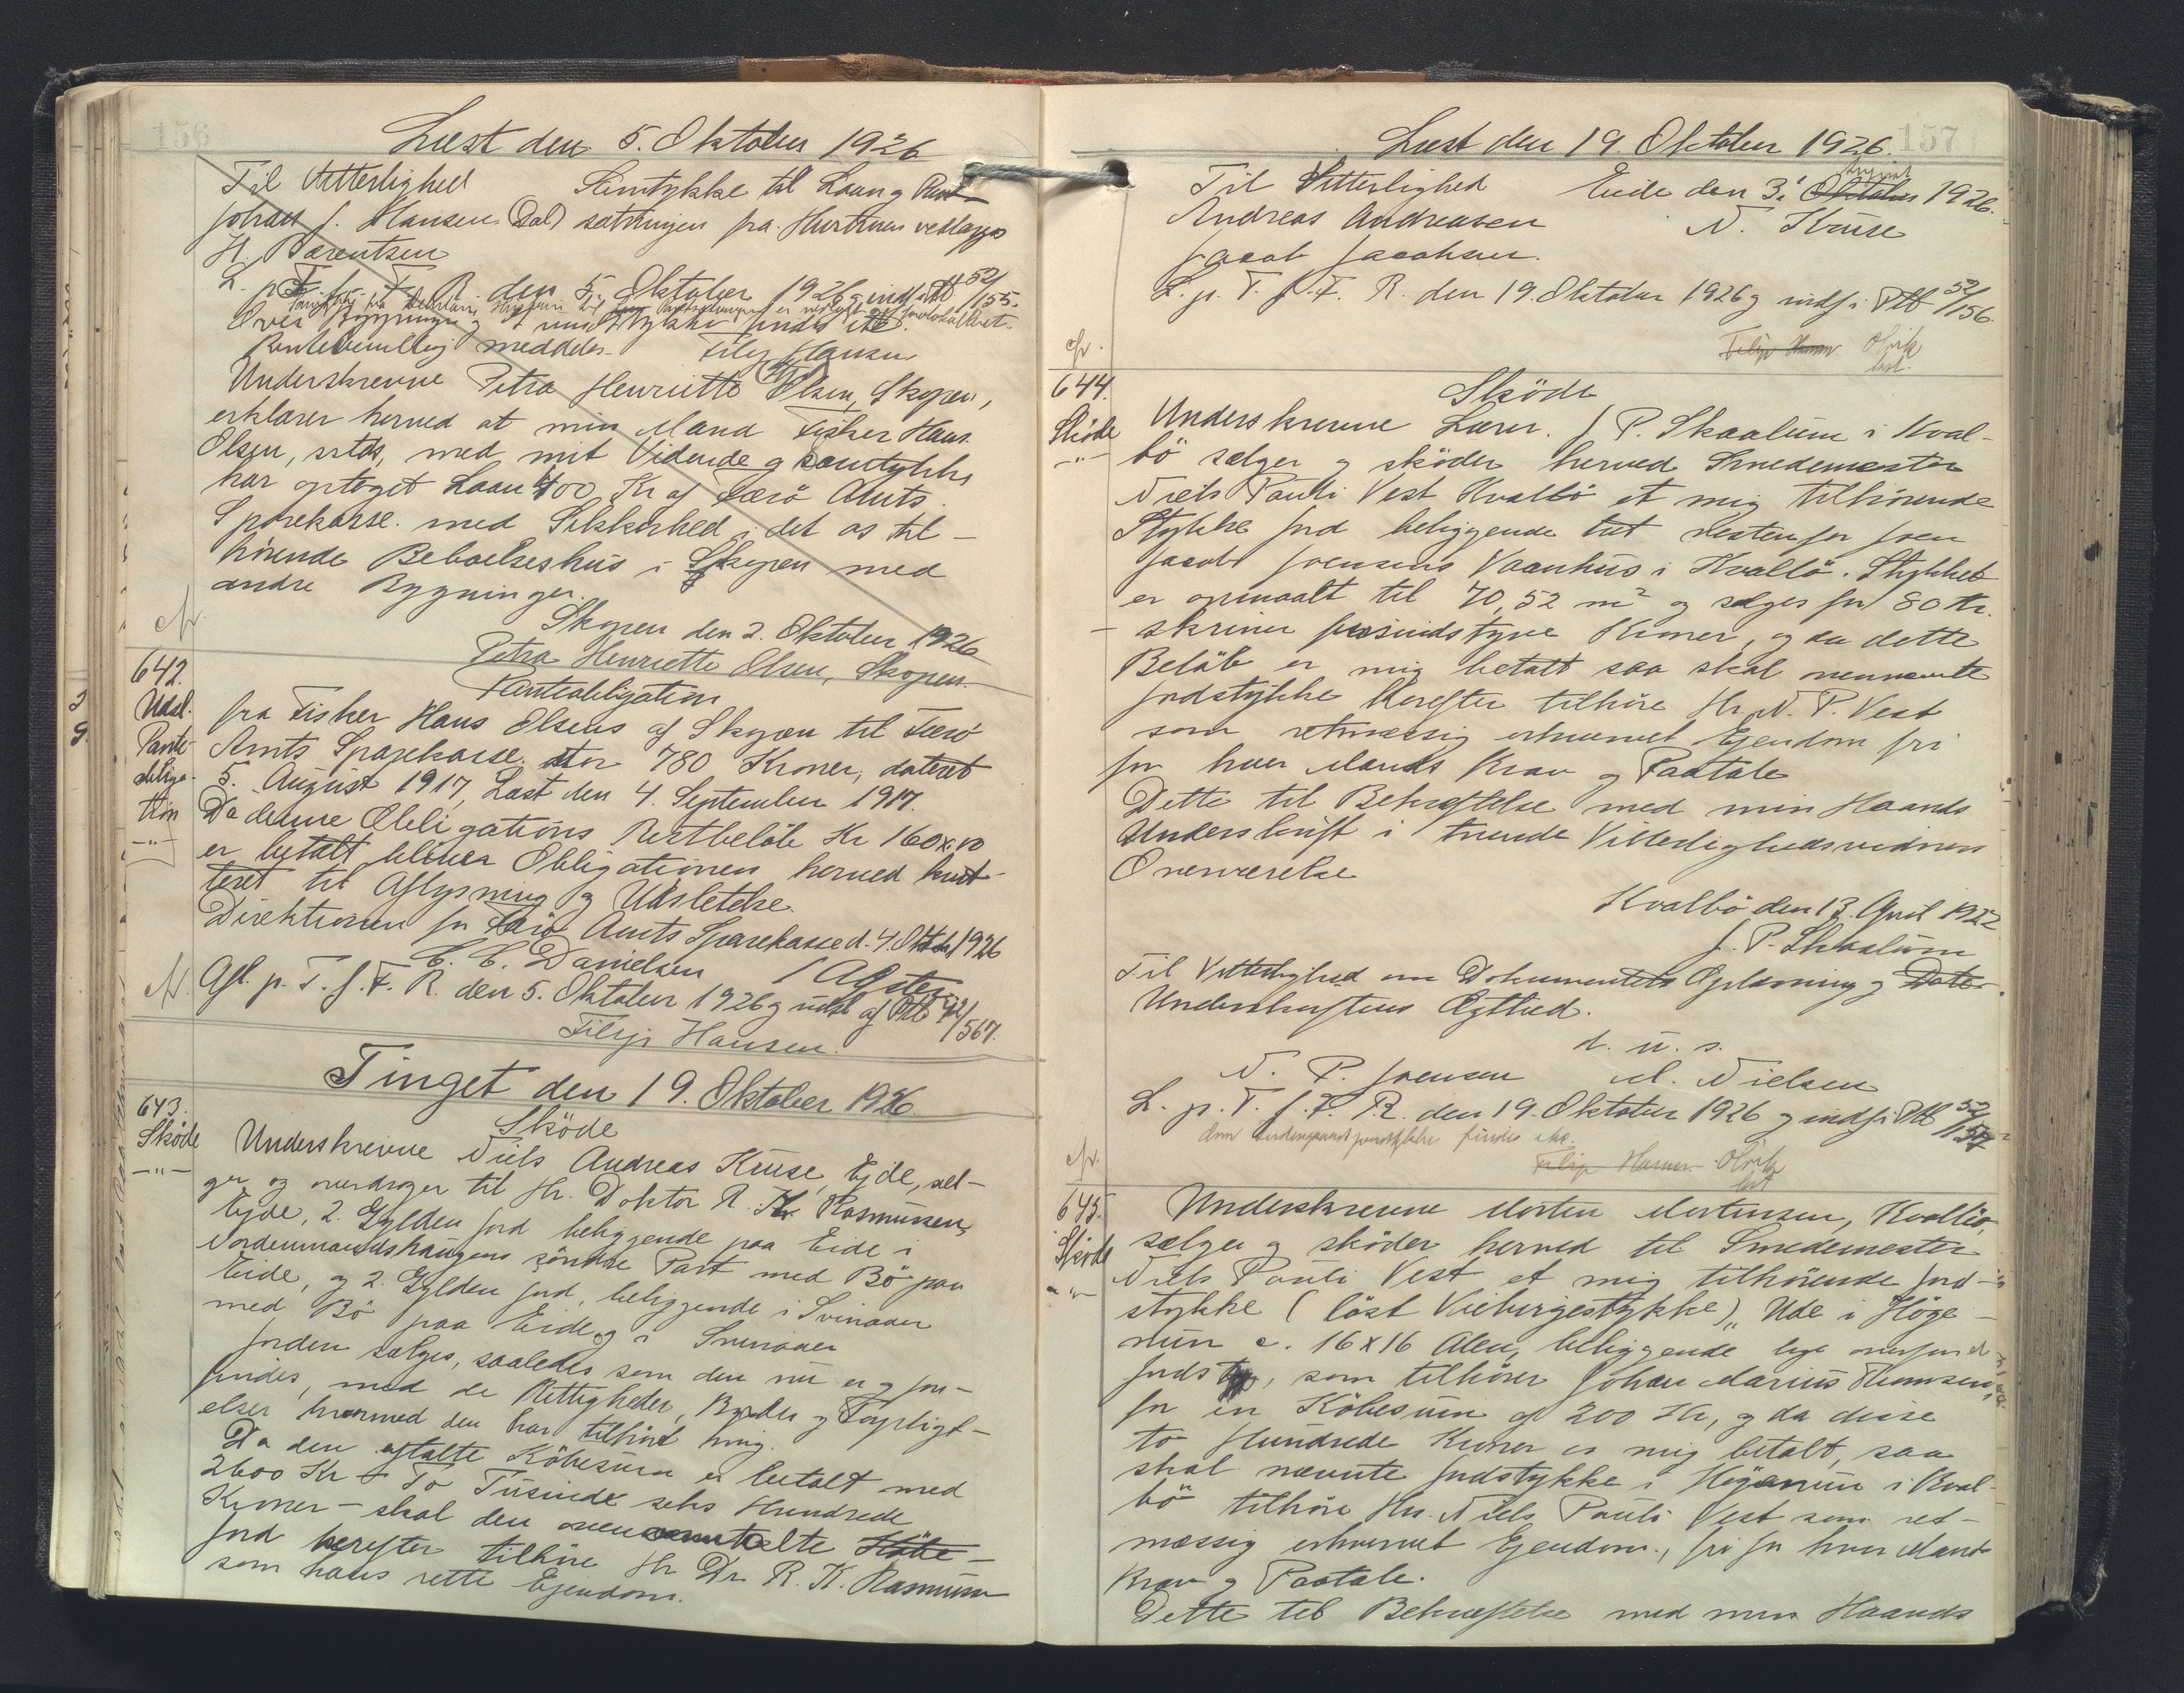 156
Læst den 5. Oktober 1926
Til Vitterlighed Samtykke til Laan og Pant-
Johan J. Hansen (Dal) sætningen fra Hustruen vedlægges
H. Barentsen
L. p. T. f. F. R. den 5. Oktober 1926 og indf. i Ptb 52/155.
Over Bygningen
Rentebevilling meddeles. Filip Hansen
Underskrevne Petra Henriette Olsen, Skopen,
erklærer herved at min Mand Fisker Hans
Olsen, sstds, med mit Vidende og Samtykke
har optaget Laan 400 Kr af Færø Amts
Sparekasse med Sikkerhed i det os til-
hörende Beboelseshus i Skopen med
andre Bygninger.
Skopen den 2. Oktober 1926
Petra Henriette Olsen, Skopen.
642.
Udsl.
Pante-
obliga-
tion
Panteobligation
fra Fisker Hans Olsens af Skopen til Færö
Amts Sparekasse. stor 780 Kroner, dateret
5. August 1917, Læst den 4. September 1917.
Da denne Obligations Restbelöb Kr 160 x 10
er betalt bliver Obligationen herved kvit-
teret til Aflysning og Udslettelse.
Direktionen for Færö Amts Sparekasse d. 4. Oktob 1926
C. C. Danielsen
Afl. p. T. f. F. R. den 5. Oktober 1926 og udsl af Ptb 42/567.
Filip Hansen.
Tinget den 19. Oktober 1926.
643.
Sköde
Sköde
Underskrevne Niels Andreas Kruse, Ejde, sæl-
ger og overdrager til Hr. Doktor R. K. Rasmussen,
Ejde, 2. Gylden Jord beliggende paa Eide i
Nordenmandshaugens söndre Part med Bö paa
Eide, og 2. Gylden Jord, beliggende i Svinaaer
med Bö paa Eide og i Svinaaer
Jorden sælges, saaledes som den nu er og fore-
findes, med de Rettigheder, Byrder og Forpligt-
elser hvormed den har tilhört mig.
Da den aftalte Köbesum er betalt med
2600 Kr - To Tusinde seks Hundrede
Kroner - skal den ovenomtalte Köbe-
Jord herefter tilhöre Hr Dr. R. K. Rasmussen
som hans rette Ejendom.
157
Læst den 19. Oktober 1926.
Til Vitterlighed Eide den 3' Oktober August 1926.
Andreas Andreasen N. Kruse
Jacob Jacobsen.
L. p. T. f. F. R. den 19. Oktober 1926 og indf. i Ptb 52/156.
Filip Hansen Olrik
kst.
644.
Sköde
Sköde
Underskrevne Lærer. J. P. Skaalum i Kval-
bö sælger og sköder herved Smedemester
Niels Pauli Vest Kvalbö et mig tilhörende
Stykke Jord beliggende tæt vestenfor Joen
Jacob Joensens Vaanhus i Kvalbö. Stykket
er opmaalt til 70,52 m² og sælges for 80 Kr.
- skriver firsindstyve Kroner, og da dette
Belöb er mig betalt saa skal nævnte
Jordstykke herefter tilhöre Hr. N. P. Vest
som retmæssig erhvervet Ejendom fri
for hver Mands Krav og Paatale
Dette til Bekræftelse med min Haands
Underskrift i tvende Vitterlighedsvidners
Overværelse
Kvalbö den 13. April 1922
J. P. Skaalum
Til Vitterlighed om Dokumentets Oplæsning og Dato-
Underskriftens Ægthed.
d. u. s.
N. P. Joensen M. Nielsen
L. p. T. f. F. R. den 19. Oktober 1926 og indf. i Ptb 52/157
Filip Hansen Olrik
kst
645.
Sköde
Underskrevne Morten Mortensen, Kvalbö,
sælger og sköder herved til Smedemester
Niels Pauli Vest et mig tilhörende Jord-
stykke (löst Vieburgestykke) "Ude i Höge-
mun c. 16 x 16 Alen, beliggende lige overfor
Jordst, som tilhörer Johan Marius Thomsen,
for en Köbesum af 200 Kr, og da disse
to Hundrede Kroner er mig betalt, saa
skal nævnte Jordstykke i Högemun i Kval-
bö tilhöre Hr. Niels Pauli Vest som ret-
mæssig erhvervet Ejendom, fri for hver Mands
Krav og Paatale.
Dette til Bekræftelse med min Haands